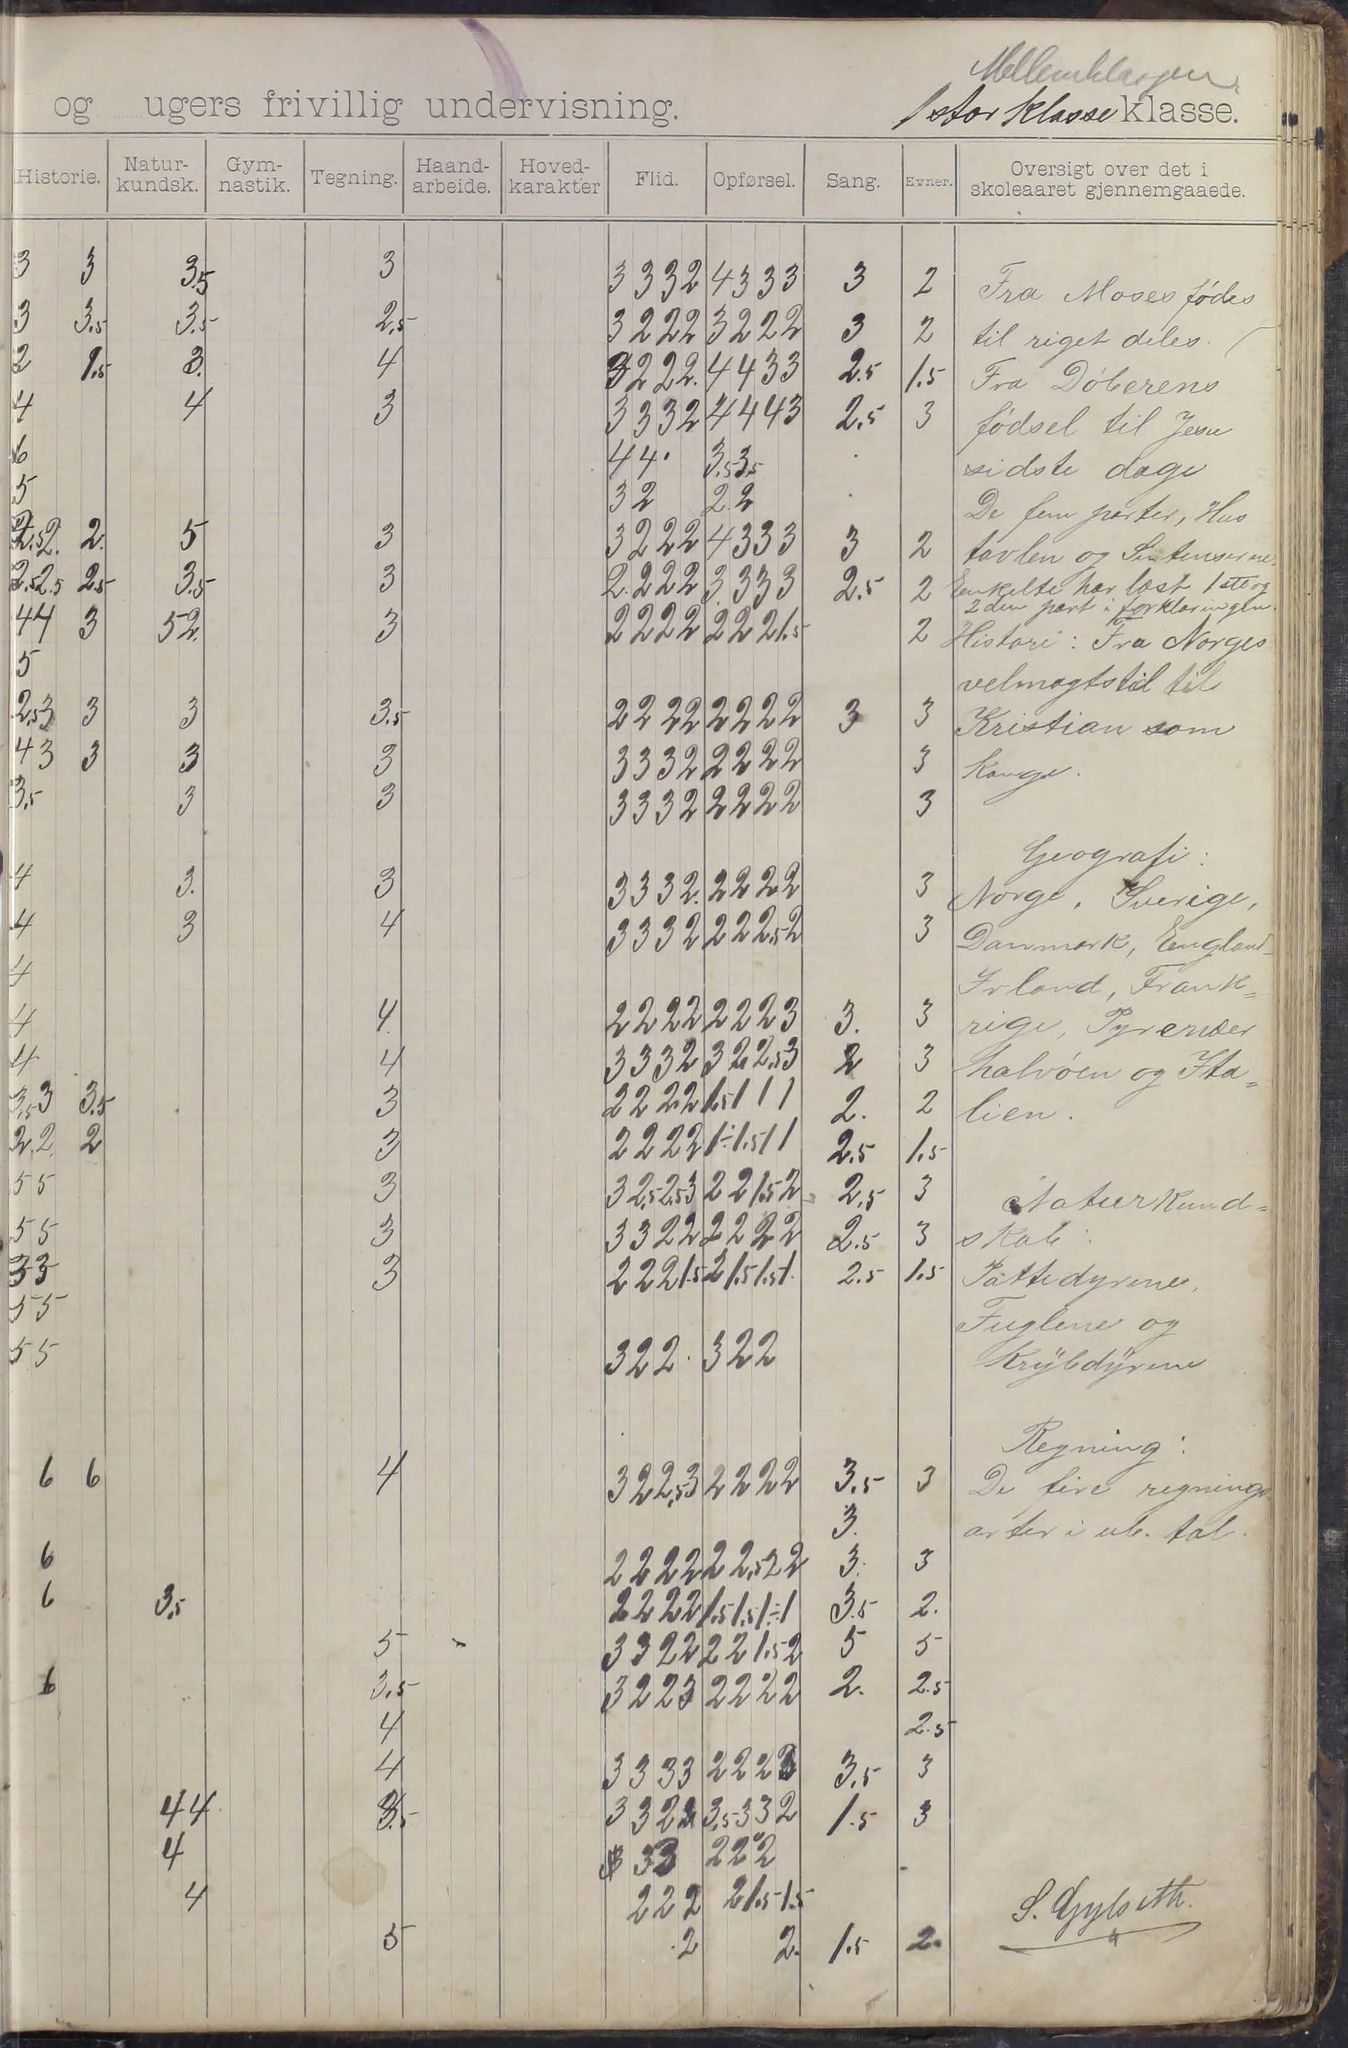 Mellemklassen
og ugers frivillig undervisning. 1stor klasse klasse.
Historie. Natur-kundsk. Gym-nastik. Tegning. Haand-arbeide. Hoved-karakter Flid. Opførsel. Sang. Evner. Oversigt over det i skoleaaret gjennemgaaede.
3 3 3.5 3 3 3 3 2 4 3 3 3 3 2 Fra Moses fødes
3 3.5 3.5 2.5 3 2 2 2 3 2 2 2 3 2 til riget deles.
2 1.5 3. 4 3 2 2 2. 4 4 3 3 2.5 1.5 Fra Döberens
4 4 3 3 3 3 2 4 4 4 3 2.5 3 fødsel til Jesu
6 4 4. 3.5 3.5 sidste dage
5 3 2 2 2 De fem parter, Hus
2.5 2. 2. 5 3 3 2 2 2 4 3 3 3 3 2 tavlen og Sentenserne.
2.5 2.5 3.5 3 2. 2 2 2 3 3 3 3 2.5 2 Enkelte har læst 1ste og
2den part i forklaringen.
4 4 3 5 2. 3 2 2 2 2 2 2 2 1.5 2 Histori: Fra Norges
5 velmagtstid til
2.5 3 3 3 3.5 2 2 2 2 2 2 2 2 3 3 Kristian som
4 3 3 3 3 3 3 3 2 2 2 2 2 3 konge.
3.5 3 3 3 3 3 2 2 2 2 2 3
Geografi:
4 3. 3 3 3 3 2. 2 2 2 2 3 Norge, Sverige,
4 3 4 3 3 3 2 2 2 2.5 2 3 Danmark, England
4 Irland, Frank=
4 4. 2 2 2 2 2 2 2 3 3. 3 rige, Pyrenæer
4 4 3 3 3 2 3 2 2.5 3 2 3 halvöen og Ita=
3.5 3 3.5 3 2 2 2 2 1.5 1 1 1 2. 2 lien.
2. 2. 2 3 2 2 2 2 1÷ 1.5 1 1 2.5 1.5
5 5 3 3 2.5 2.5 3 2 2 1.5 2 2.5 3 Naturkund=
5 5 3 3 3 2 2 2 2 2 2 2.5 3 skab:
3 3 3 2 2 2 1.5 2 1.5 1.5 1. 2.5 1.5 Pattedyrene,
5 5 Fuglene og
5 5 3 2 2. 3 2 2 Krybdyrene
Regning:
6 6 4 3 2 2.5 3 2 2 2 2 3.5 3 De fire regnings
3. arter i ub. tal.
6 2 2 2 2 2 2.5 2 2 3. 3
6 3.5 2 2 2 2 1.5 1.5 1÷ 1 3.5 2.
5 3 3 2 2 2 2 1.5 2 5 5
6 3.5 3 2 2 3 2 2 2 2 2. 2.5
4 2.5
4 3 3 3 3 2 2 2 3 3.5 3
4 4 3.5 3 3 2 2 3.5 3 3 2 1.5 3
4 3 3 2 2 2
4 2 2 2 2 1.5 1.5
5 2 2. 1.5 2.
S. Gylseth.